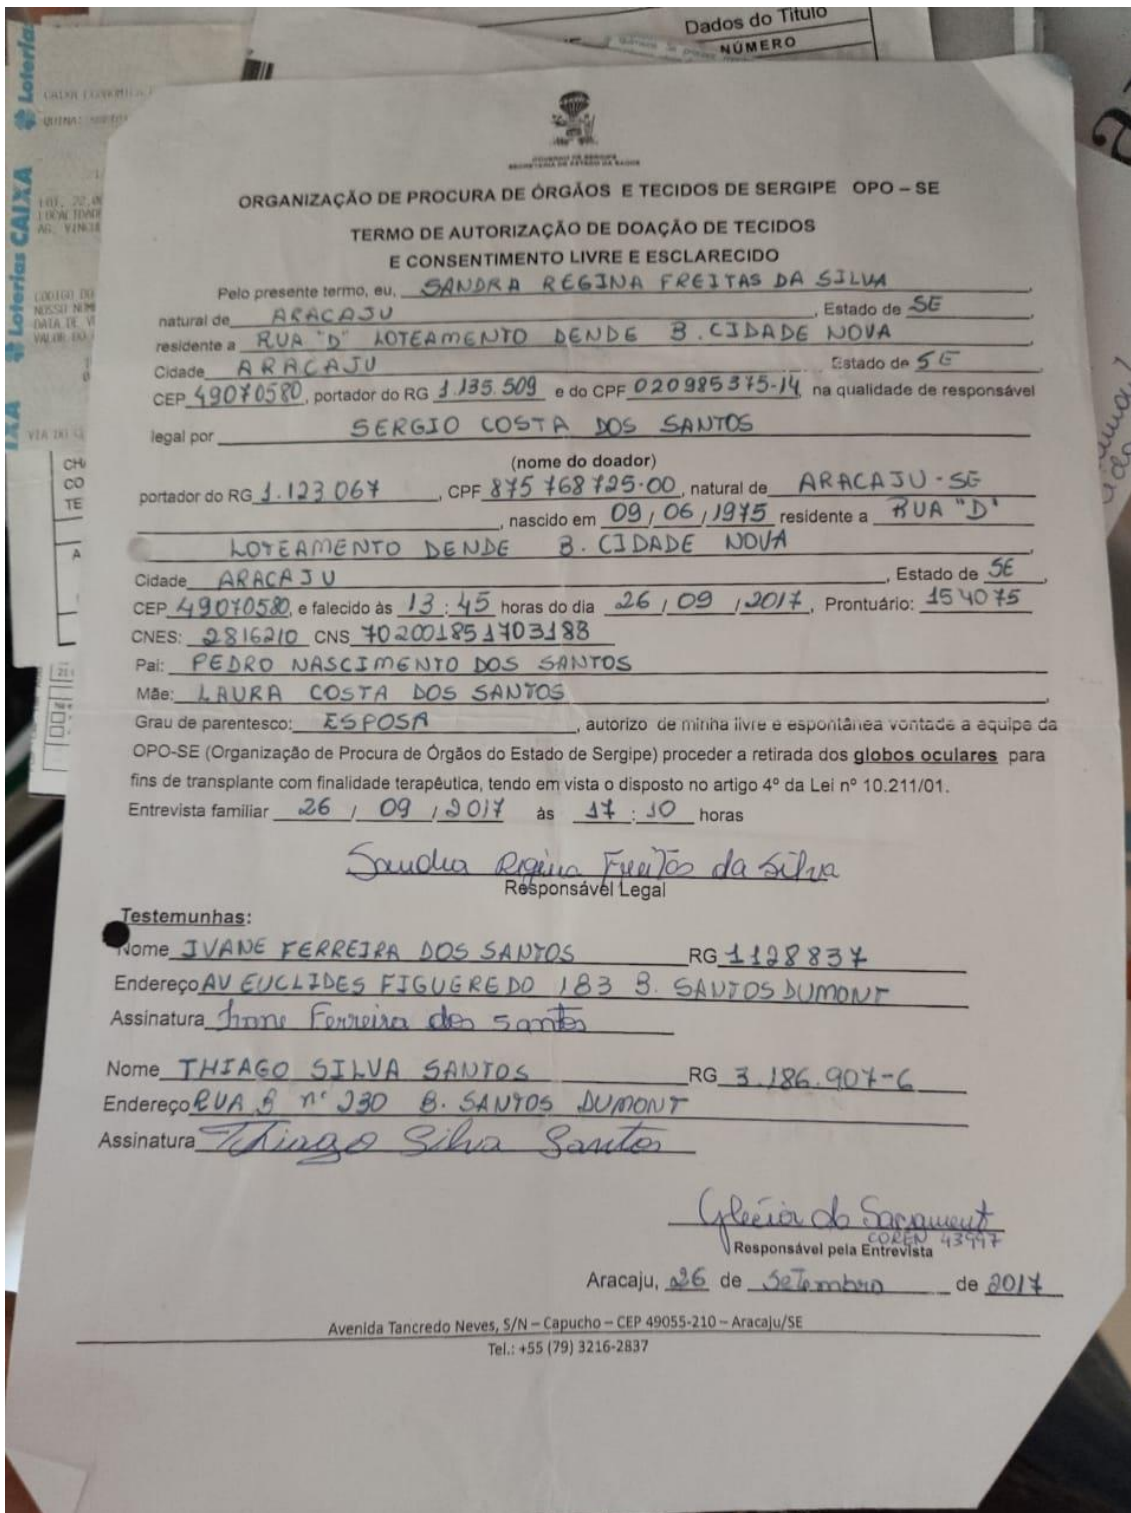 Dados do Título
NÚMERO
Loterias
Loterias CAIXA
GOVERNO DE SERGIPE
SECRETARIA DE ESTADO DA SAÚDE
ORGANIZAÇÃO DE PROCURA DE ÓRGÃOS E TECIDOS DE SERGIPE OPO – SE
TERMO DE AUTORIZAÇÃO DE DOAÇÃO DE TECIDOS
E CONSENTIMENTO LIVRE E ESCLARECIDO
Pelo presente termo, eu, SANDRA REGINA FREITAS DA SILVA,
natural de ARACAJU, Estado de SE
residente a RUA "D" LOTEAMENTO DENDE B. CIDADE NOVA
Cidade ARACAJU Estado de SE
CEP 49070580, portador do RG 1.135.509 e do CPF 020985375-14, na qualidade de responsável
legal por SERGIO COSTA DOS SANTOS
(nome do doador)
portador do RG 1.123.067, CPF 875 768 725-00, natural de ARACAJU-SE
, nascido em 09/06/1975 residente a RUA "D"
LOTEAMENTO DENDE B. CIDADE NOVA,
Cidade ARACAJU, Estado de SE,
CEP 49070580, e falecido às 13:45 horas do dia 26/09/2017, Prontuário: 154075
CNES: 2816210 CNS 702001851703183
Pai: PEDRO NASCIMENTO DOS SANTOS
Mãe: LAURA COSTA DOS SANTOS,
Grau de parentesco: ESPOSA, autorizo de minha livre e espontânea vontade a equipe da
OPO-SE (Organização de Procura de Órgãos do Estado de Sergipe) proceder a retirada dos globos oculares para
fins de transplante com finalidade terapêutica, tendo em vista o disposto no artigo 4º da Lei nº 10.211/01.
Entrevista familiar 26/09/2017 às 17:10 horas
Sandra Regina Freitas da Silva
Responsável Legal
Testemunhas:
Nome IVANE FERREIRA DOS SANTOS RG 1128837
Endereço AV EUCLIDES FIGUEREDO 183 B. SANTOS DUMONT
Assinatura Ivane Ferreira dos Santos
Nome THIAGO SILVA SANTOS RG 3.186.907-6
Endereço RUA B nº 230 B. SANTOS DUMONT
Assinatura Thiago Silva Santos
Glecia do Sacrament
COREN 43997
Responsável pela Entrevista
Aracaju, 26 de Setembro de 2017
Avenida Tancredo Neves, S/N – Capucho – CEP 49055-210 – Aracaju/SE
Tel.: +55 (79) 3216-2837